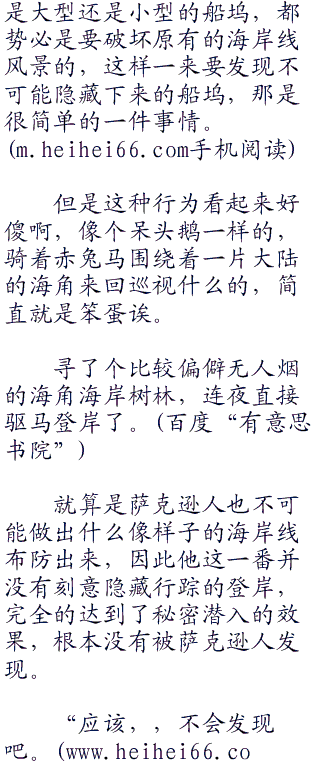 是大型还是小型的船坞，都
势必是要破坏原有的海岸线
风景的，这样一来要发现不
可能隐藏下来的船坞，那是
很简单的一件事情。
(m.heihei66.com手机阅读)
但是这种行为看起来好
傻啊，像个呆头鹅一样的，
骑着赤兔马围绕着一片大陆
的海角来回巡视什么的，简
直就是笨蛋诶。
寻了个比较偏僻无人烟
的海角海岸树林，连夜直接
驱马登岸了。(百度“有意思
书院”)
就算是萨克逊人也不可
能做出什么像样子的海岸线
布防出来，因此他这一番并
没有刻意隐藏行踪的登岸，
完全的达到了秘密潜入的效
果，根本没有被萨克逊人发
现。
“应该，，不会发现
吧。(www.heihei66.co